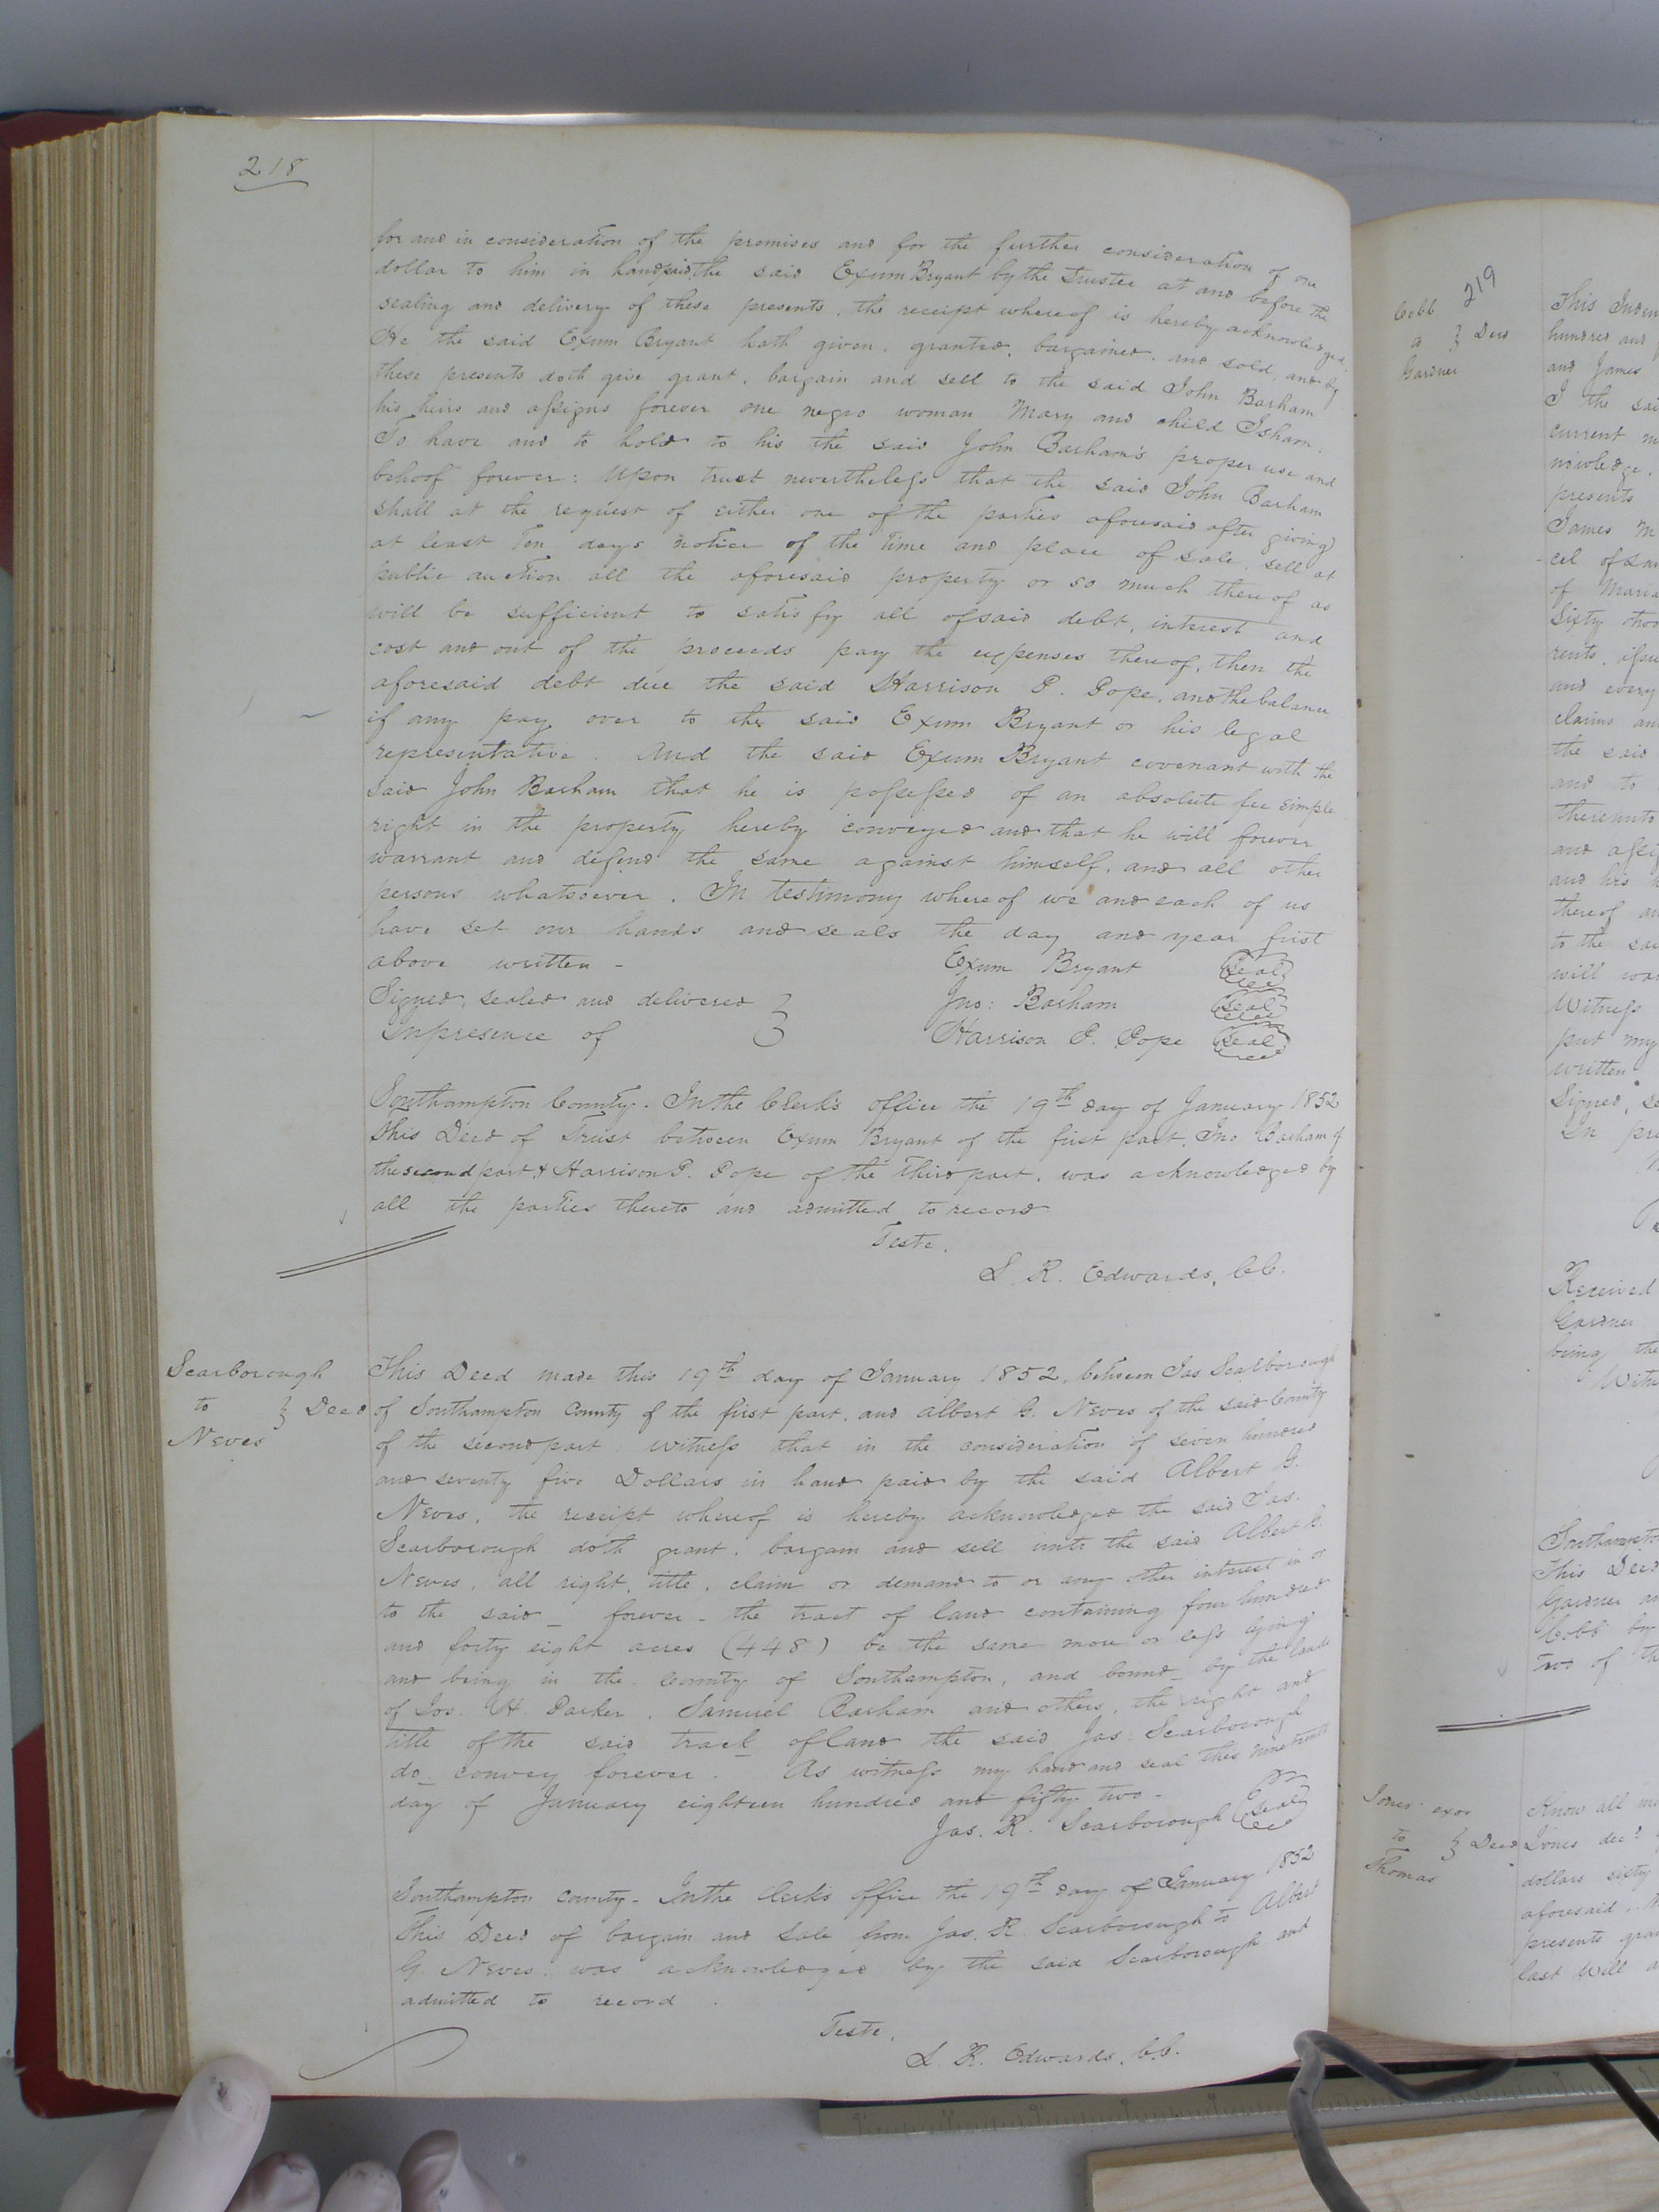 218
for and in consideration of the premises and for the further consideration of one
dollar to him in hand paid, the said Exum Bryant by the Trustee at and before the
sealing and delivery of these presents, the receipt whereof is hereby acknowledged,
He the said Exum Bryant hath given, granted, bargained, and sold, and by
these presents doth give grant, bargain and sell to the said John Barham
his heirs and assigns forever one negro woman Mary and child Isham,
To have and to hold to his the said John Barham's proper use and
behoof forever: Upon trust nevertheless that the said John Barham
shall at the request of either one of the parties aforesaid after giving
at least Ten days notice of the time and place of sale, sell at
public auction all the aforesaid property or so much thereof as
will be sufficient to satisfy all of said debt, interest and
cost and out of the proceeds pay the expenses thereof, then the
aforesaid debt due the said Harrison P. Pope, and the balance
if any pay over to the said Exum Bryant or his legal
representative. And the said Exum Bryant covenant with the
said John Barham that he is possessed of an absolute fee simple
right in the property hereby conveyed and that he will forever
warrant and defend the same against himself, and all other
persons whatsoever. In testimony whereof we and each of us
have set our hands and seals the day and year first
above written -
Exum Bryant Seal
Signed, sealed and delivered } Jno: Barham Seal
In presence of Harrison P. Pope Seal
Southampton County. In the Clerk's office the 19th day of January 1852
This Deed of Trust between Exum Bryant of the first part, Jno Barham of
the second part & Harrison P. Pope of the third part, was acknowledged by
all the parties thereto and admitted to record
Teste,
L. R. Edwards, C.C.
Scarborough
to } Deed
Neves
This Deed made this 19th day of January 1852, between Jas Scarborough
of Southampton County of the first part, and Albert G. Neves of the said County
of the second part. Witness that in the consideration of seven hundred
and seventy five Dollars in hand paid by the said Albert G.
Neves, the receipt whereof is hereby acknowledged the said Jas.
Scarborough doth grant, bargain and sell unto the said Albert G.
Neves, all right, title, claim or demand to or any other interest in or
to the said _ forever - the tract of land containing four hundred
and forty eight acres (448) be the same more or less lying
and being in the County of Southampton, and bound_ by the lands
of Jos. H. Parker, Samuel Barham and others, the right and
title of the said track of land the said Jas: Scarborough
do_ convey forever. As witness my hand and seal this nineteenth
day of January eighteen hundred and fifty two -
Jas. R. Scarborough Seal
Southampton County - In the Clerk's office the 19th day of January 1852
This Deed of bargain and sale from Jas. R. Scarborough to Albert
G. Neves. was acknowledged by the said Scarborough and
admitted to record.
Teste,
L. R. Edwards, C.C.
219
Cobb
to } Deed
Gardner
This
hundred and
and James
I the said
current
presents
James M
of land
of
Sixty
rents,
and every
claims and
the said
and to
thereunto
and
and his
thereof
to the said
will
Witness
put my
written
Signed,
In
Received
Gardner
being the
Southampton
This Deed
Gardner
Cobb by
two of the
Jones' exor
to } Deed
Thomas
Know all
Jones dec'd
dollars sixty
aforesaid,
presents
last Will